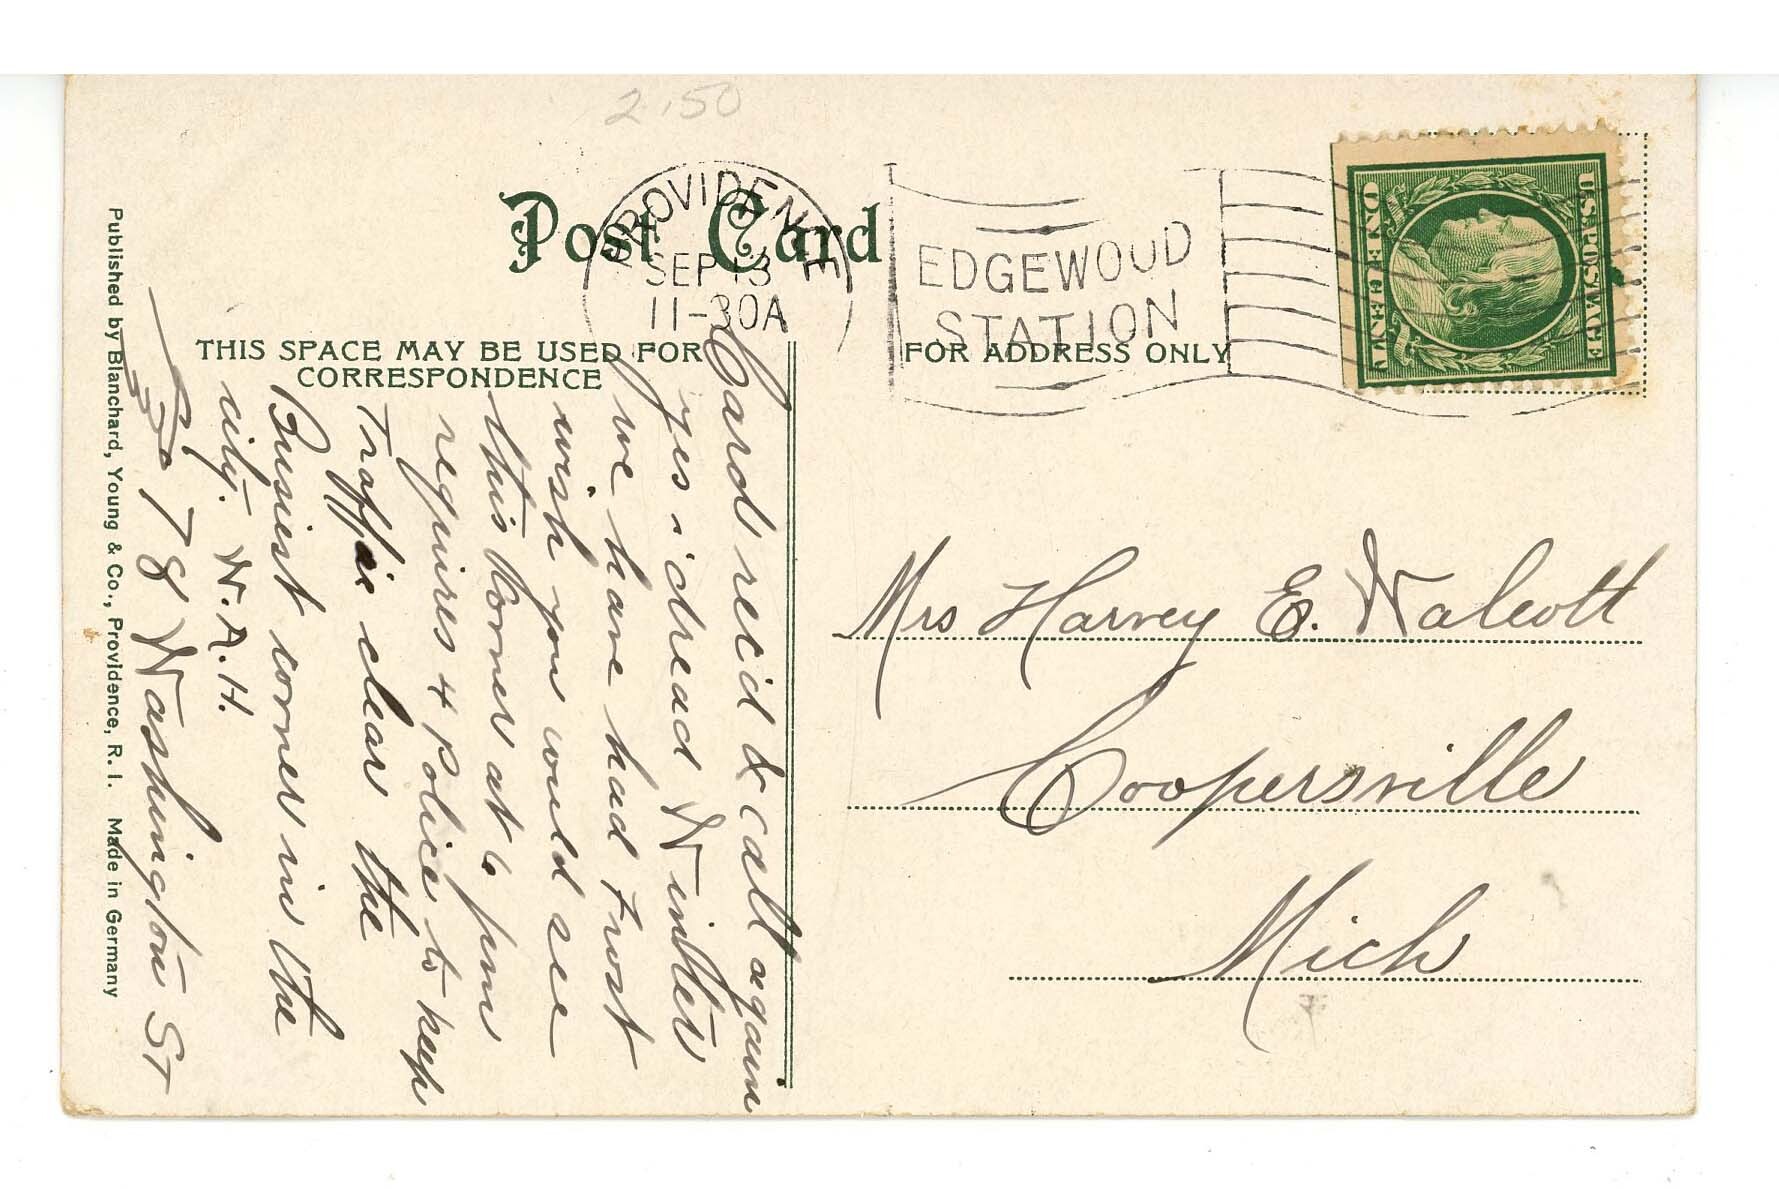 2.50
Post Card
PROVIDENCE
SEP 13
11-30A
EDGEWOOD
STATION
U.S. POSTAGE
ONE CENT
THIS SPACE MAY BE USED FOR
CORRESPONDENCE
FOR ADDRESS ONLY
Card rec'd & call again
yes i dread Winter
we have had Frost
wish you would see
this Corner at 6 pm
requires 4 Police to keep
Traffic clear the
Busiest corner in the
city. W.A.H.
78 Washington St
Mrs Harvey E. Walcott
Coopersville
Mich
Published by Blanchard, Young & Co., Providence, R. I. Made in Germany